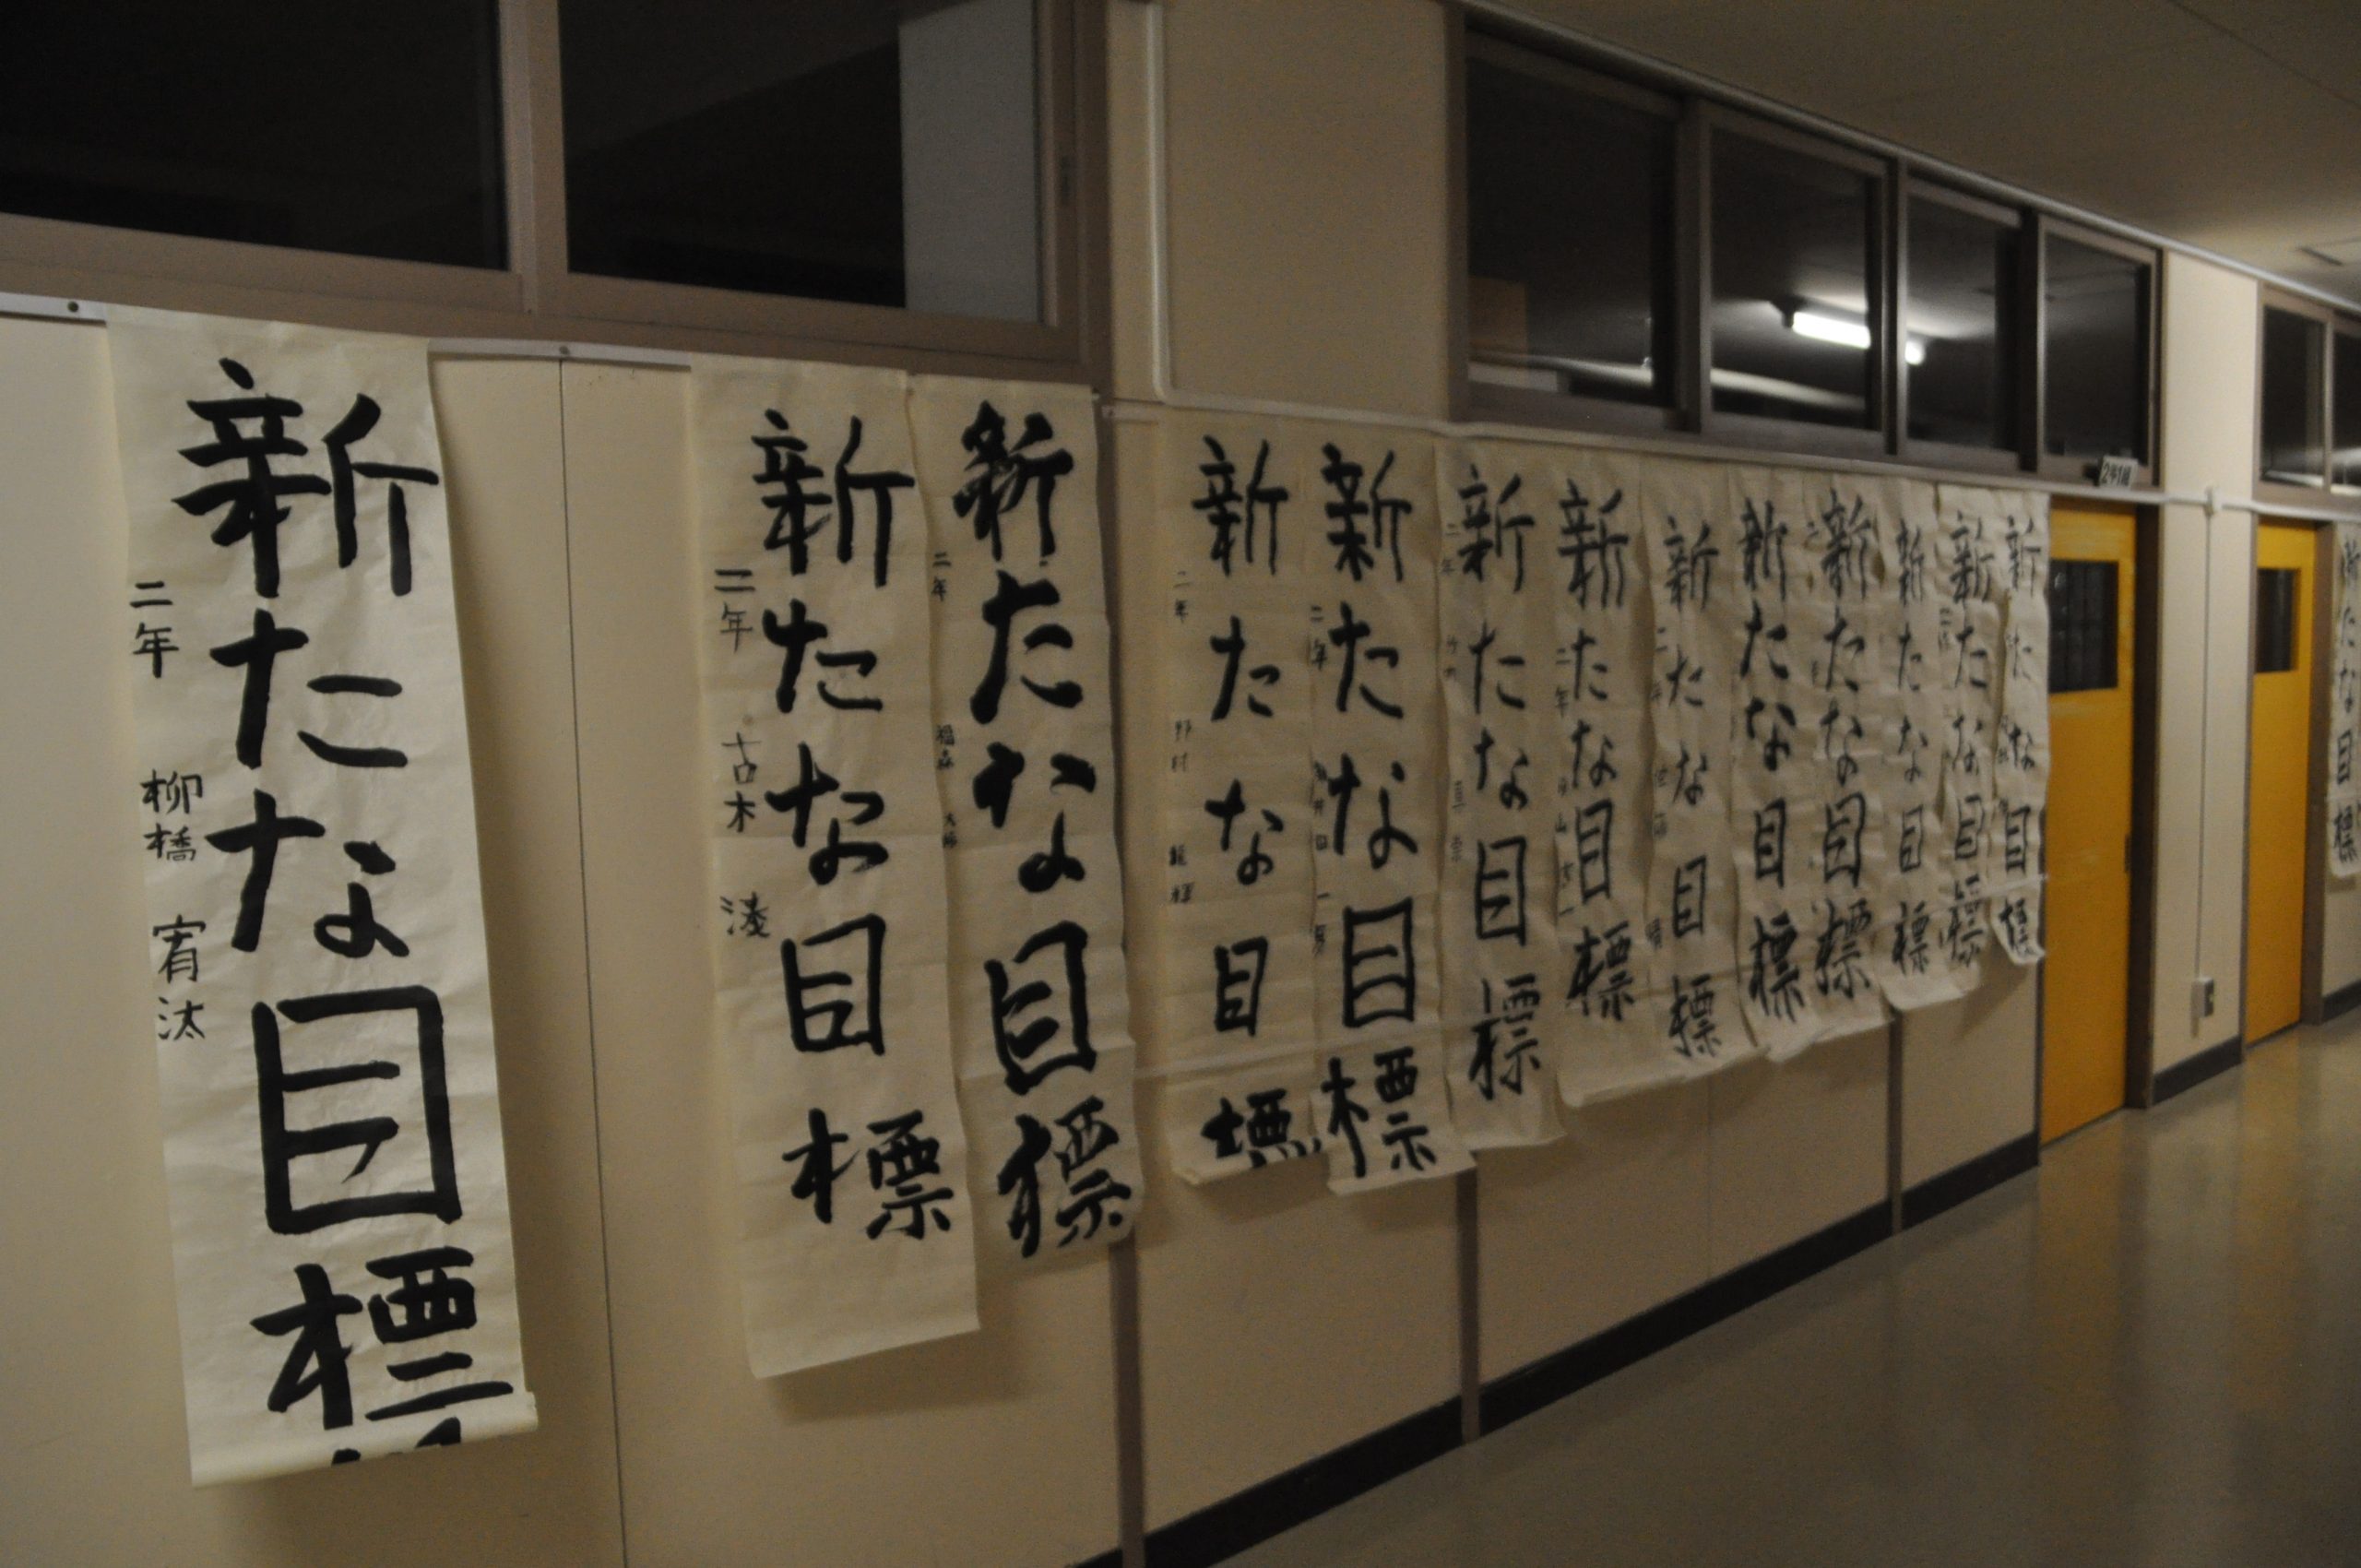 新たな目標
二年 柳橋 宥汰
新たな目標
二年 古木 湊
新たな目標
二年 福森
新たな目標
二年 野村
新たな目標
二年
新たな目標
新たな目標
二年
新たな目標
二年
新たな目標
新たな目標
新たな目標
新たな目標
新たな目標
2年1組
たな目標